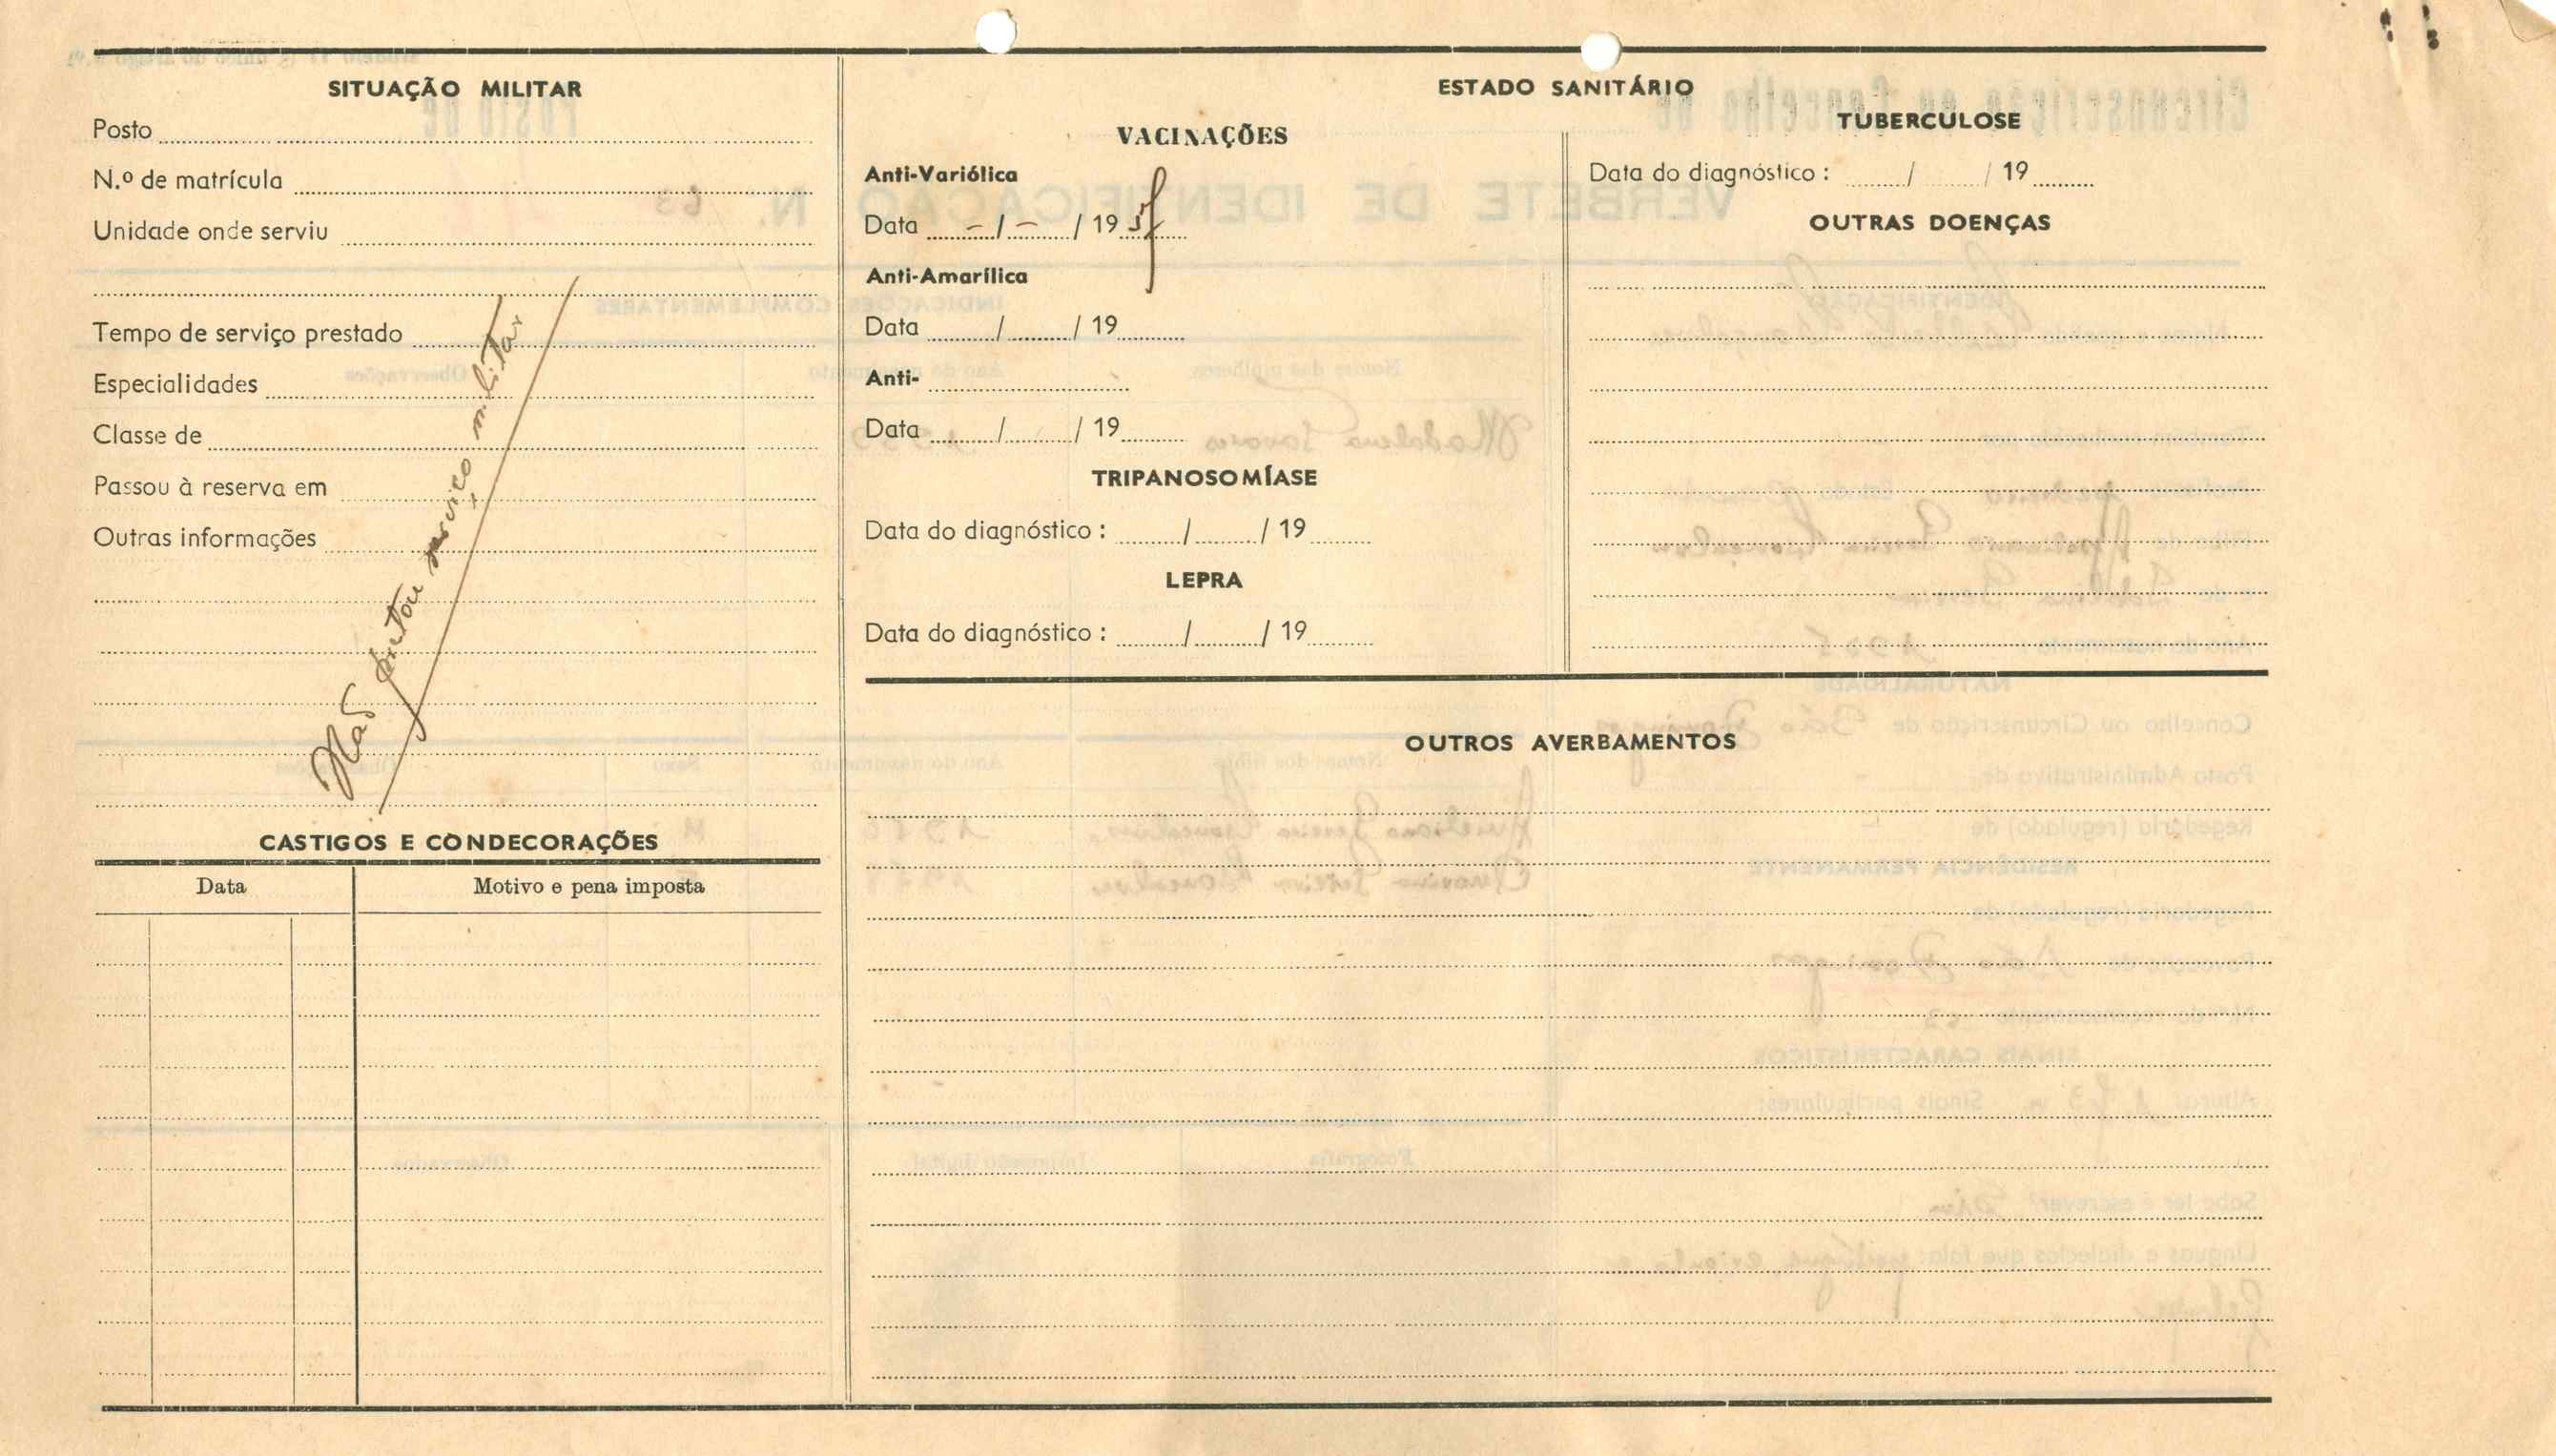 SITUAÇÃO MILITAR
Posto
N.º de matrícula
Unidade onde serviu
Tempo de serviço prestado
Especialidades
Classe de
Passou à reserva em
Outras informações
Não prestou serviço militar
CASTIGOS E CONDECORAÇÕES
Data Motivo e pena imposta
ESTADO SANITÁRIO
VACINAÇÕES
Anti-Variólica
Data - / - / 1957
Anti-Amarílica
Data / / 19
Anti-
Data / / 19
TRIPANOSOMÍASE
Data do diagnóstico : / / 19
LEPRA
Data do diagnóstico : / / 19
TUBERCULOSE
Data do diagnóstico : / / 19
OUTRAS DOENÇAS
OUTROS AVERBAMENTOS